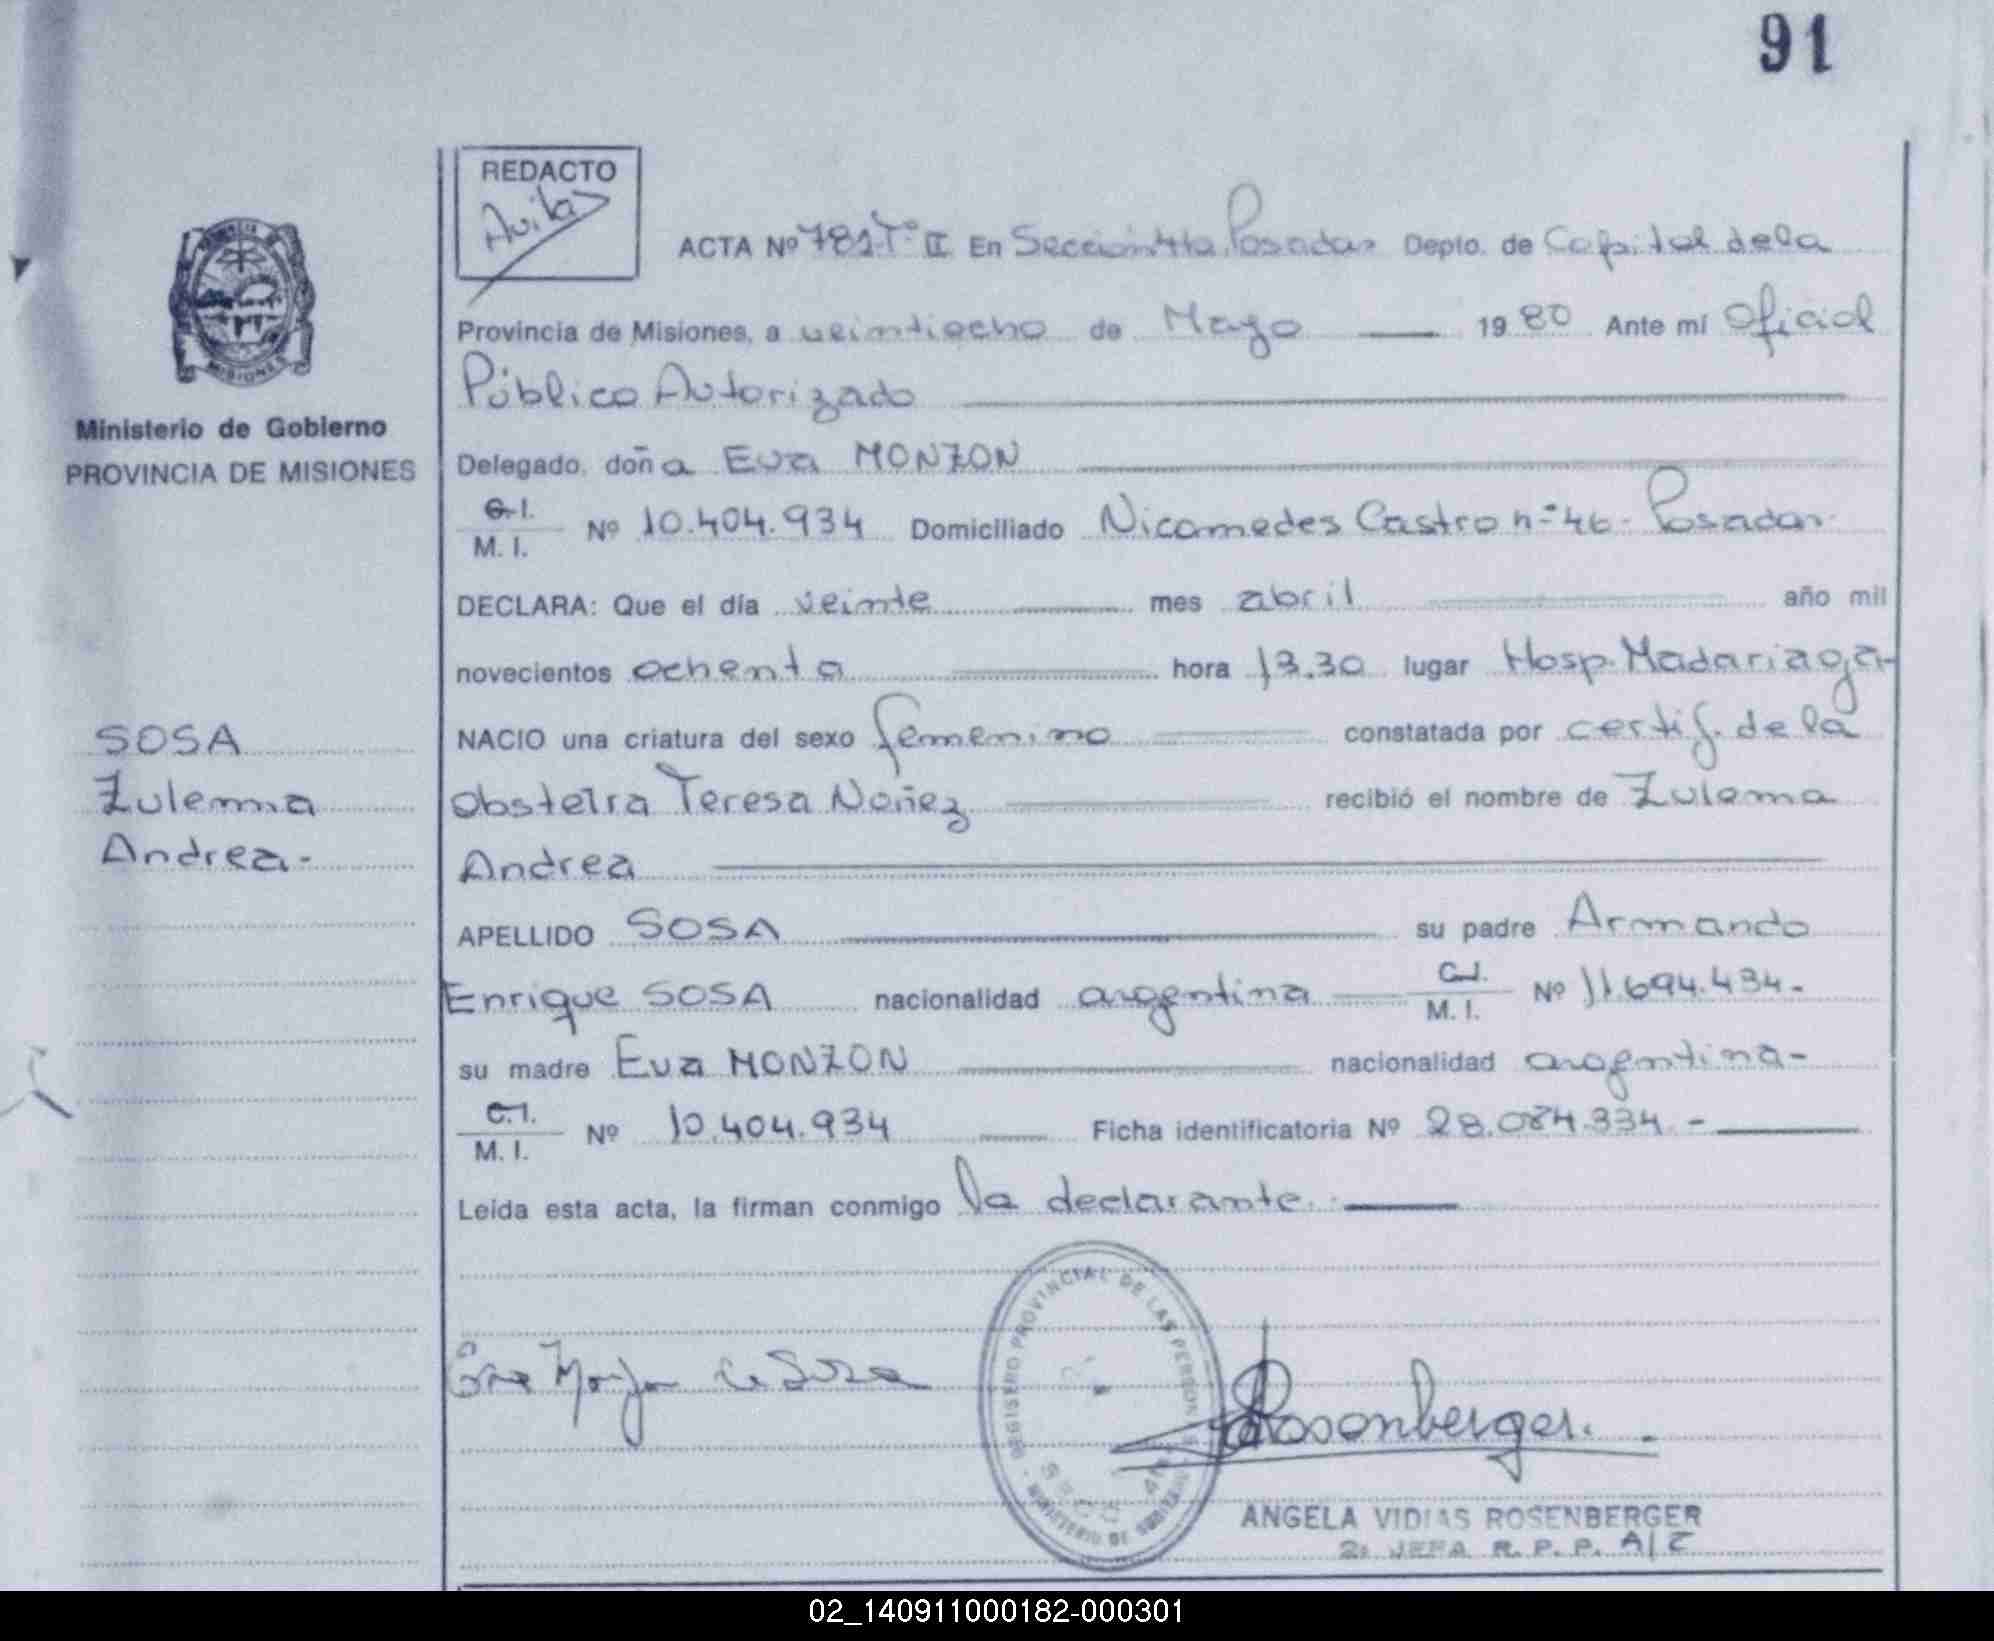 91
REDACTO
Avila
ACTA Nº 781 Tº II En Sección 4ta. Posadas Depto. de Capital de la
Provincia de Misiones, a veintiocho de Mayo 1980 Ante mí Oficial
Público Autorizado
Delegado, doña Eva MONZON
C.I. M.I. Nº 10.404.934 Domiciliado Nicomedes Castro nº 46 - Posadas
DECLARA: Que el día veinte mes abril año mil
novecientos ochenta hora 13.30 lugar Hosp. Madariaga-
NACIO una criatura del sexo femenino constatada por certif. de la
obstetra Teresa Nuñez recibió el nombre de Zulema
Andrea
APELLIDO SOSA su padre Armando
Enrique SOSA nacionalidad argentina C.I. M.I. Nº 11.694.434.-
su madre Eva MONZON nacionalidad argentina-
C.I. M.I. Nº 10.404.934 Ficha identificatoria Nº 28.084.334 -
Leída esta acta, la firman conmigo la declarante.
MISIONES
Ministerio de Gobierno
PROVINCIA DE MISIONES
SOSA
Zulema
Andrea-
Eva Monzon de Sosa
REGISTRO PROVINCIAL DE LAS PERSONAS
MINISTERIO DE GOBIERNO
Rosenberger.
ANGELA VIDIAS ROSENBERGER
2º JEFA R. P. P. A/C
02_140911000182-000301